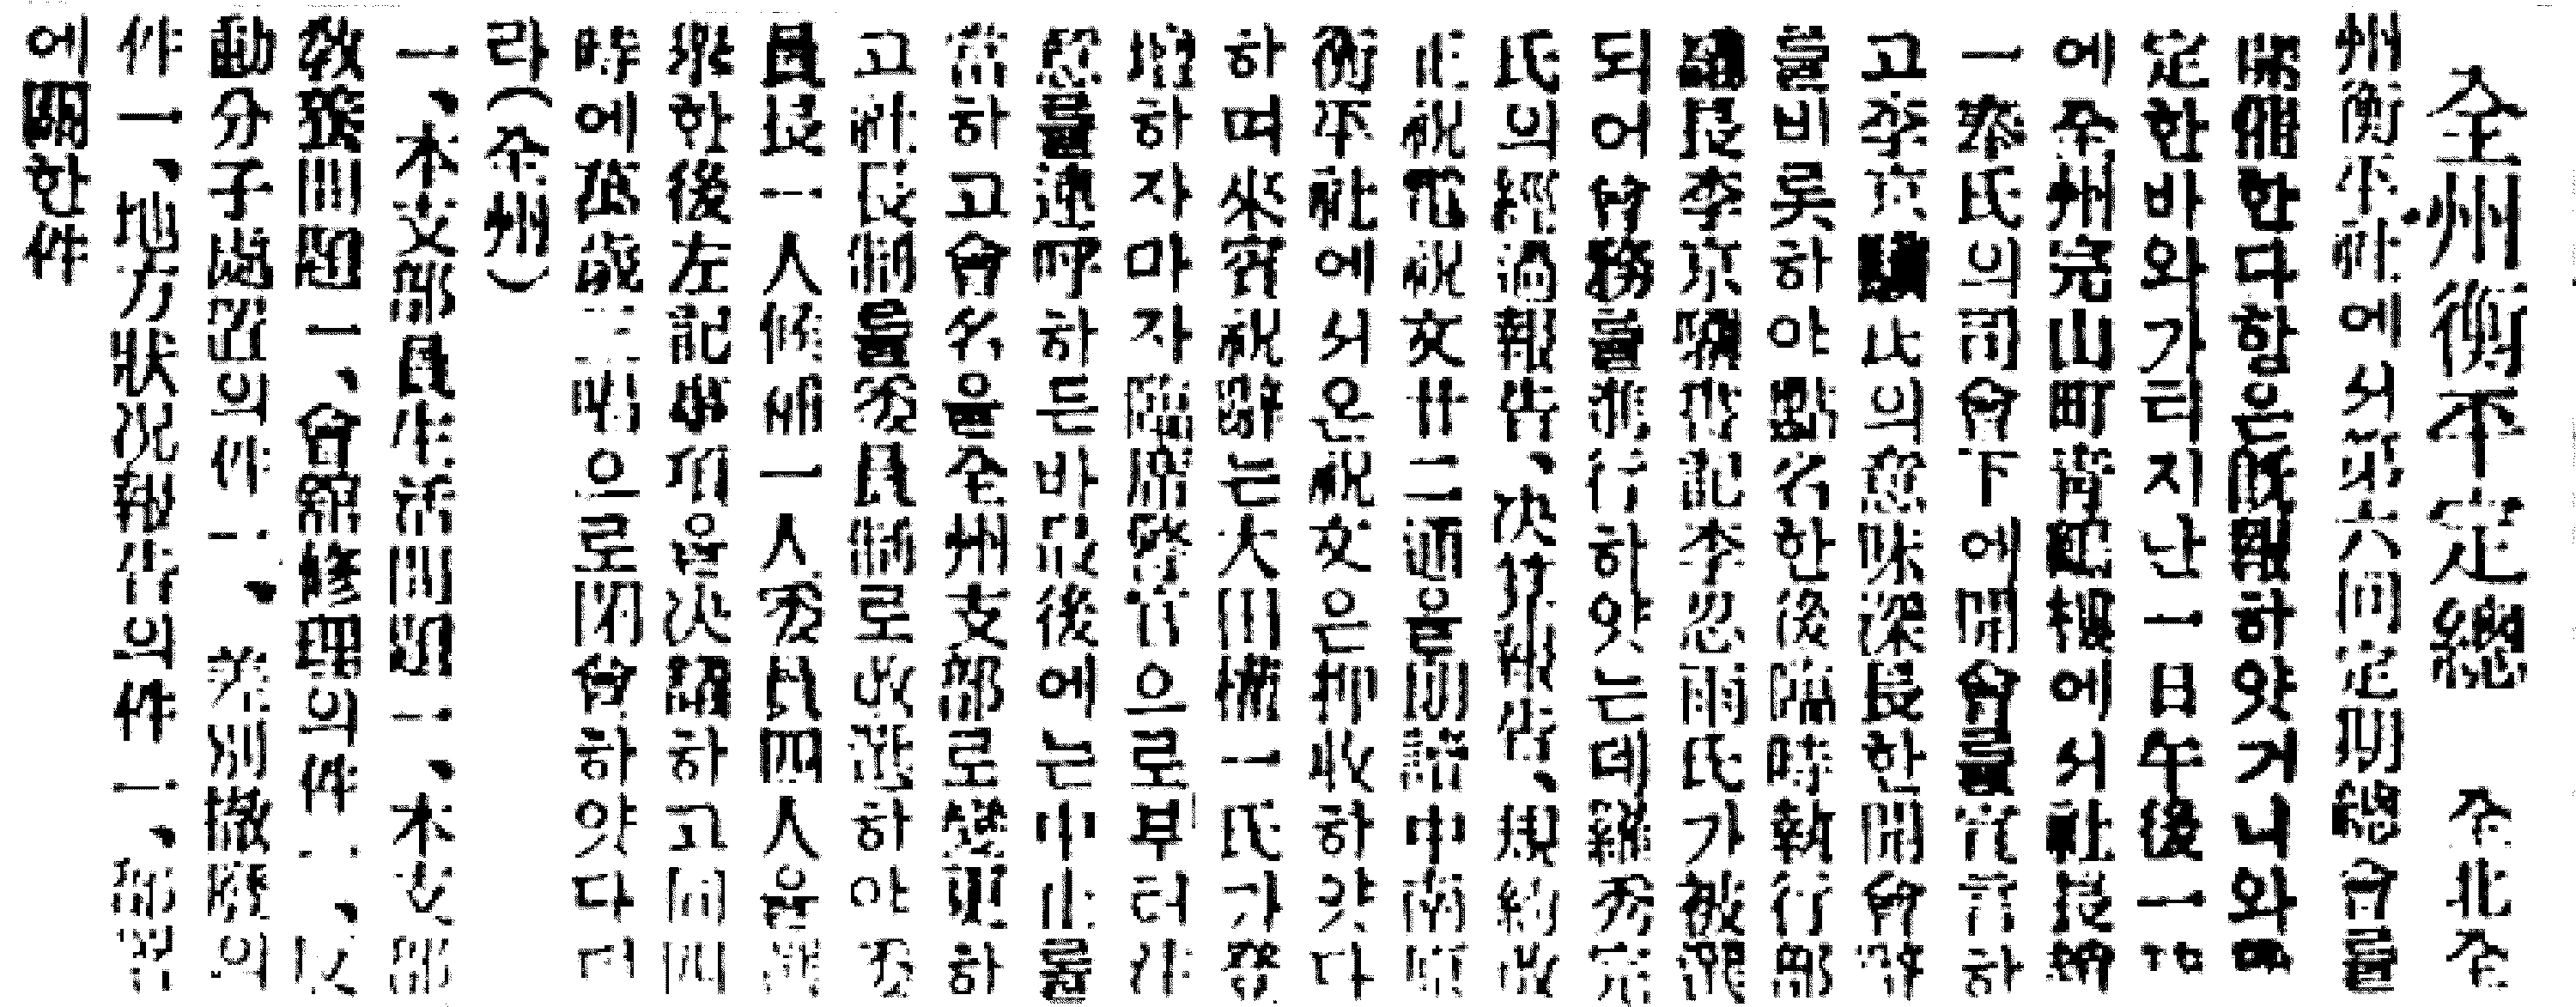 全州衡平定總 全北全
州衡平社에서第六回定期總會를
開催한다함은旣報하얏거니와
定한바와가티지난一日午後一時
에全州完山町 樓에서社長
一奉氏의司會下에開會를宣言하
고李京 氏의意味深長한開會辭
를비롯하야點名한後臨時執行部
議長李京 書記李忍雨氏가被選
되어會務를進行하얏는데
氏의經過報告、決算報告、規約改
正祝電祝文廿二通을朗讀中南原
衡平社에서온祝文은押收하얏다
하며來賓祝辭는大田 一氏가登
壇하자마자臨席警官으로부터
忿를連呼하든바最後에는中止를
當하고會名을全州支部로變更하
고社長制를委員制로改選하야委
員長一人 一人委員四人을選
擧한後左記事項을決議하고同四
時에萬歲三唱으로閉會하얏다더
라(全州)
一、本支部員生活問題一、本支部
敎養問題一、會館修理의件一、反
動分子處置의件一、差別撤廢의
件一、地方狀況報告의件一、部
에關한件